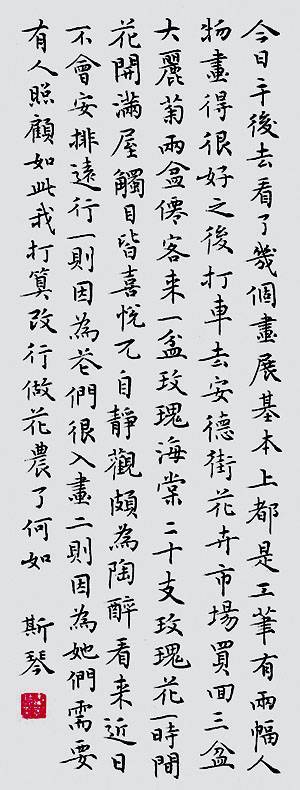 今日午後去看了幾個畫展基本上都是工筆有兩幅人
物畫得很好之後打車去安德街花卉市場買回三盆
大麗菊兩盆僊客来一盆玫瑰海棠二十支玫瑰花一時間
花開滿屋觸目皆喜悅兀自靜觀頗為陶醉看来近日
不會安排遠行一則因為花們很入畫二則因為她們需要
有人照顧如此我打算改行做花農了何如 斯琴